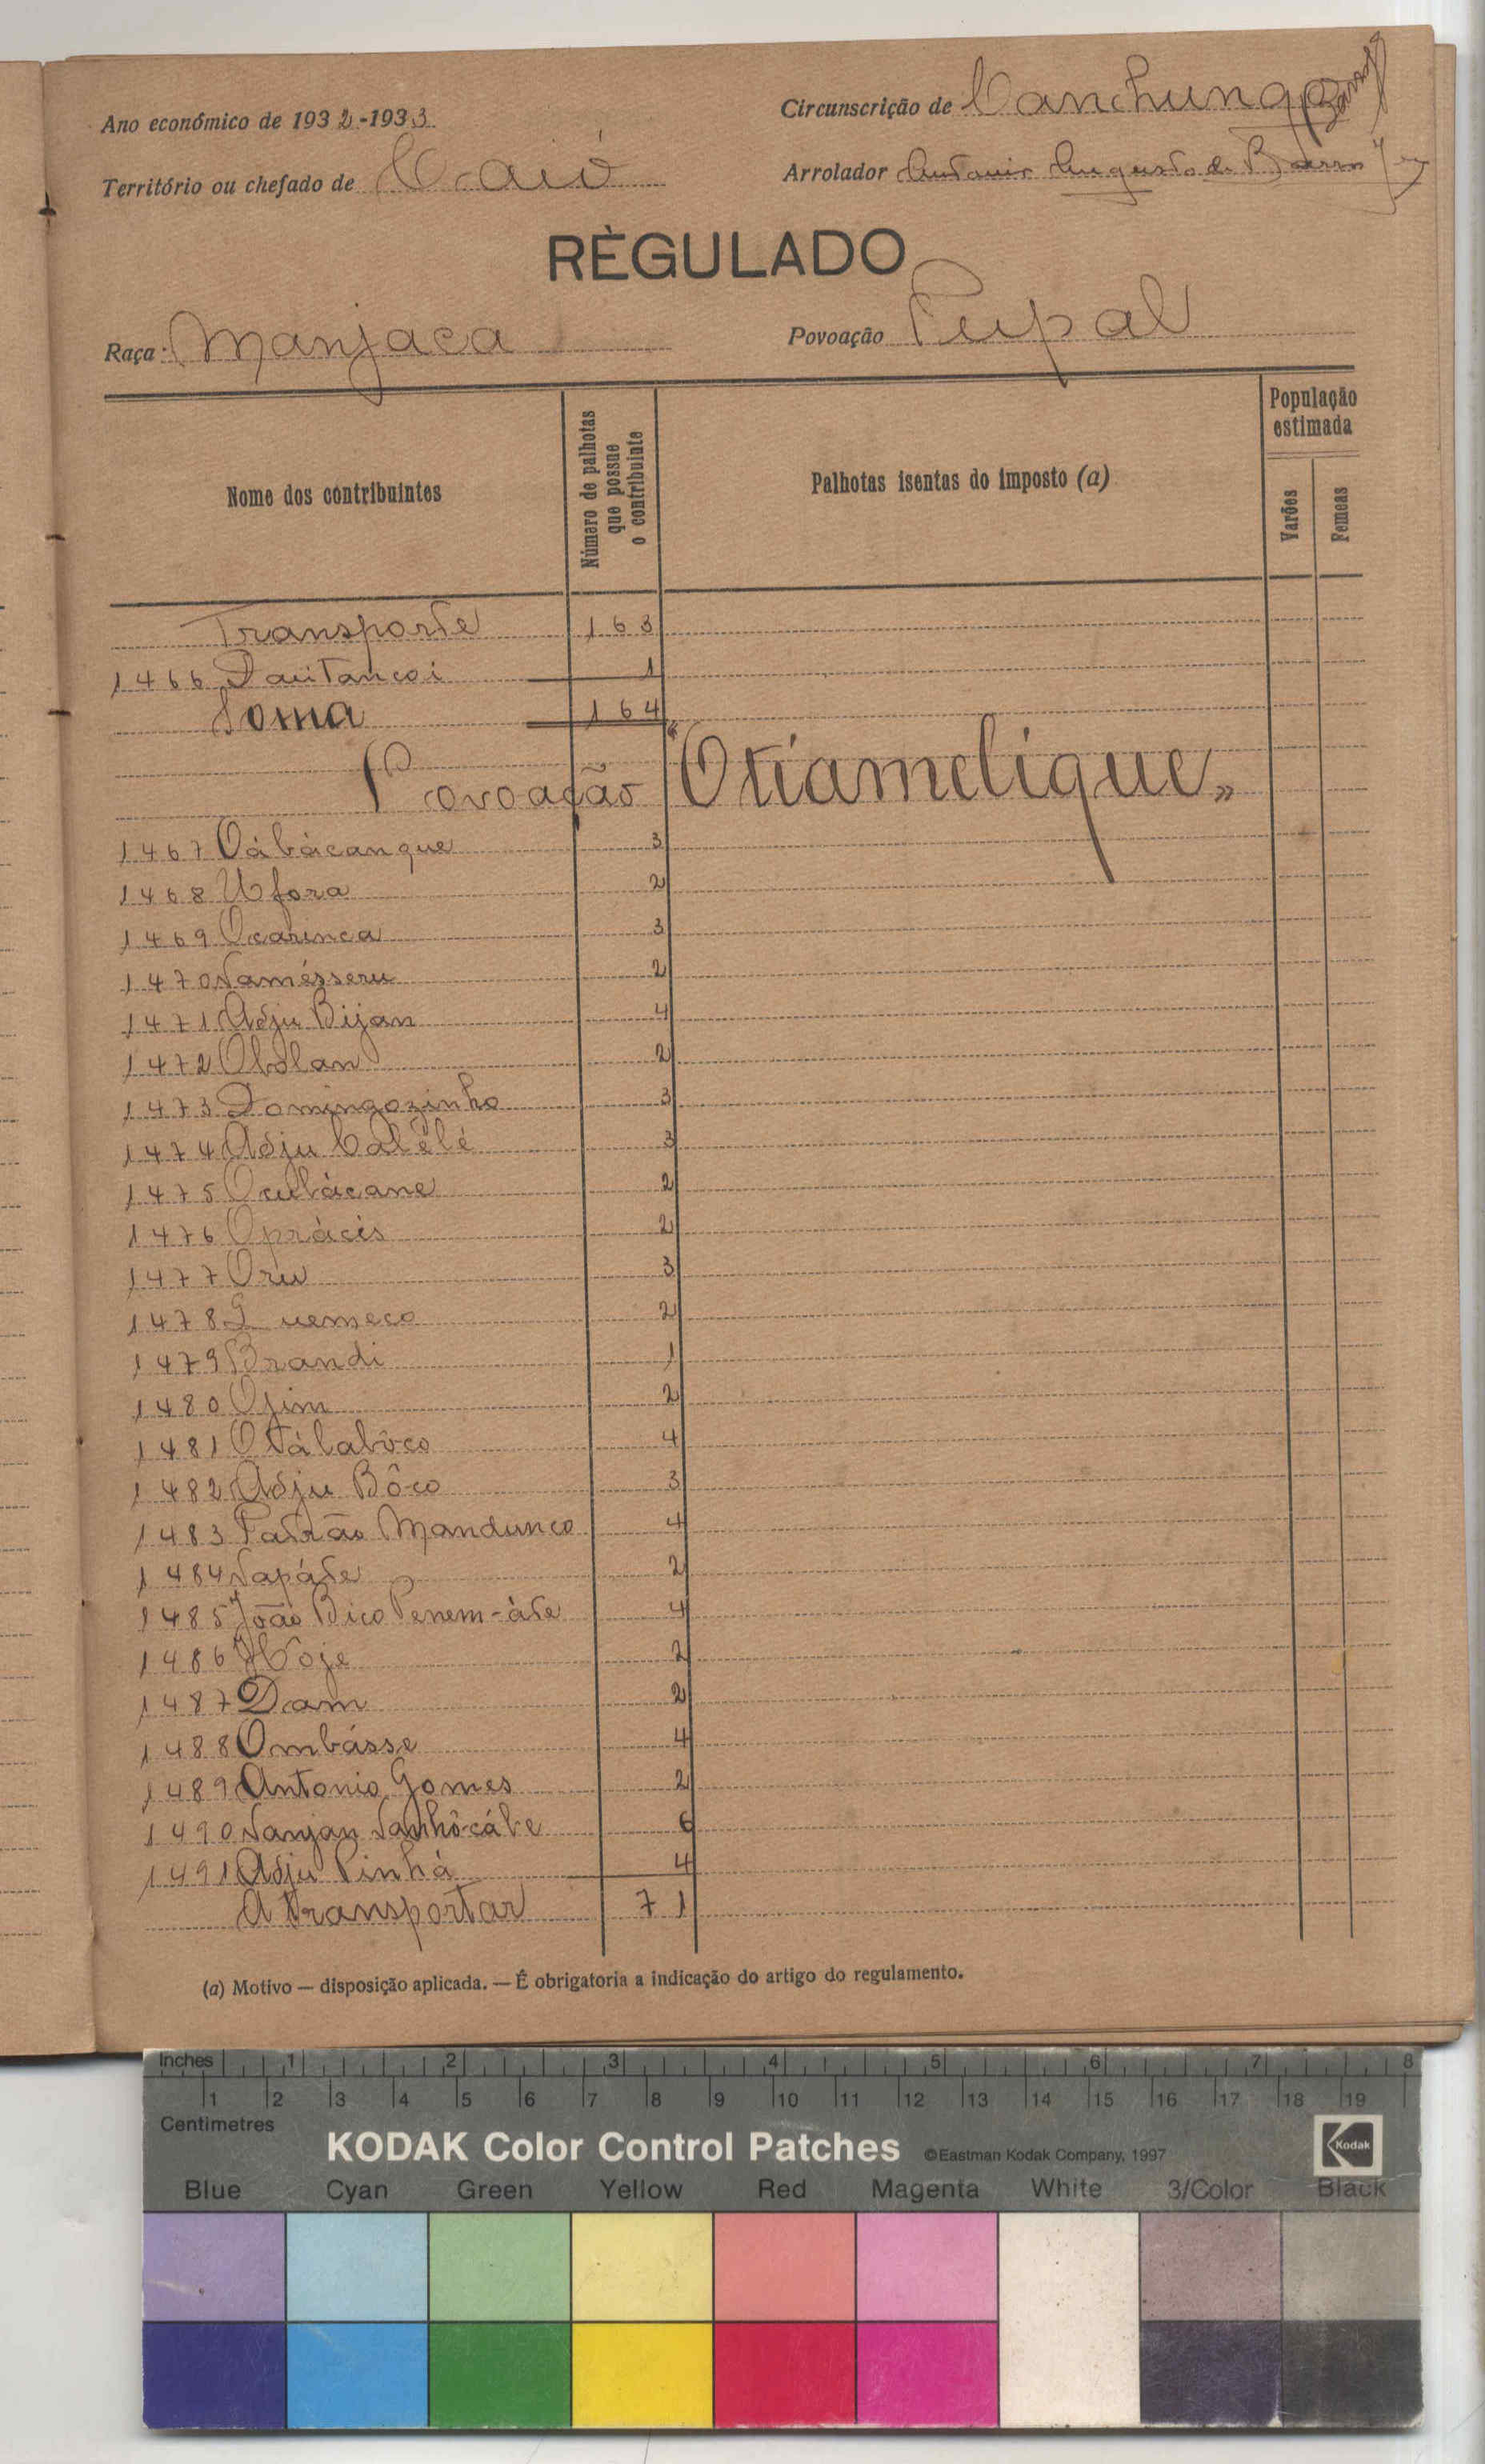 Ano económico de 1932-1933
Circunscrição de Canchungo
Território ou chefado de Caió
Arrolador Antonio Augusto de Barros
RÈGULADO
Raça: Manjaca
Povoação Peupal
Nome dos contribuintes
Número de palhotas que possue o contribuinte
Palhotas isentas do imposto (a)
População estimada
Varões
Femeas
Transporte 163
1466 Dauitancoi 1
Soma 164
Povoação "Otiamelique"
1467 Cábácanque 3
1468 Ufora 2
1469 Ocarinca 3
1470 Namésseru 2
1471 Adju Bijan 4
1472 Obolan 2
1473 Domingozinho 3
1474 Adju Calélé 3
1475 Ocubácane 2
1476 Oprácis 2
1477 Oru 3
1478 Quemeco 2
1479 Brandi 1
1480 Ojim 2
1481 Otálabôco 4
1482 Adju Bôco 3
1483 Patrão Mandunco 4
1484 Napáte 2
1485 João Bico Penem-áte 4
1486 Hoje 2
1487 Dam 2
1488 Ombásse 4
1489 Antonio Gomes 2
1490 Nanjan Nanhô-cábe 6
1491 Adju Pinhá 4
A transportar 71
(a) Motivo — disposição aplicada. — É obrigatoria a indicação do artigo do regulamento.
Inches 1 2 3 4 5 6 7 8
1 2 3 4 5 6 7 8 9 10 11 12 13 14 15 16 17 18 19
Centimetres
KODAK Color Control Patches ©Eastman Kodak Company, 1997 Kodak
Blue Cyan Green Yellow Red Magenta White 3/Color Black